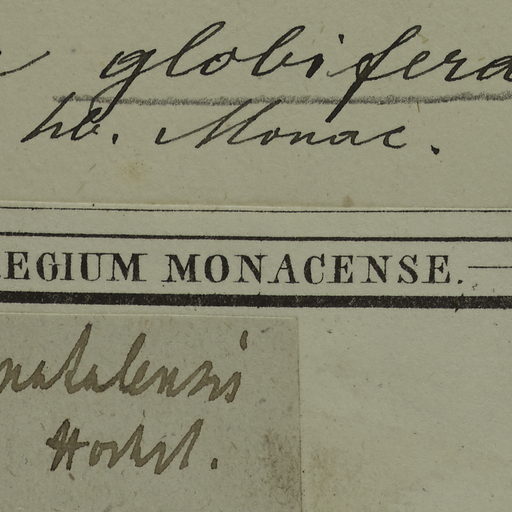 globifera
hb. Monac.
REGIUM MONACENSE.
natalensis
Hochst.